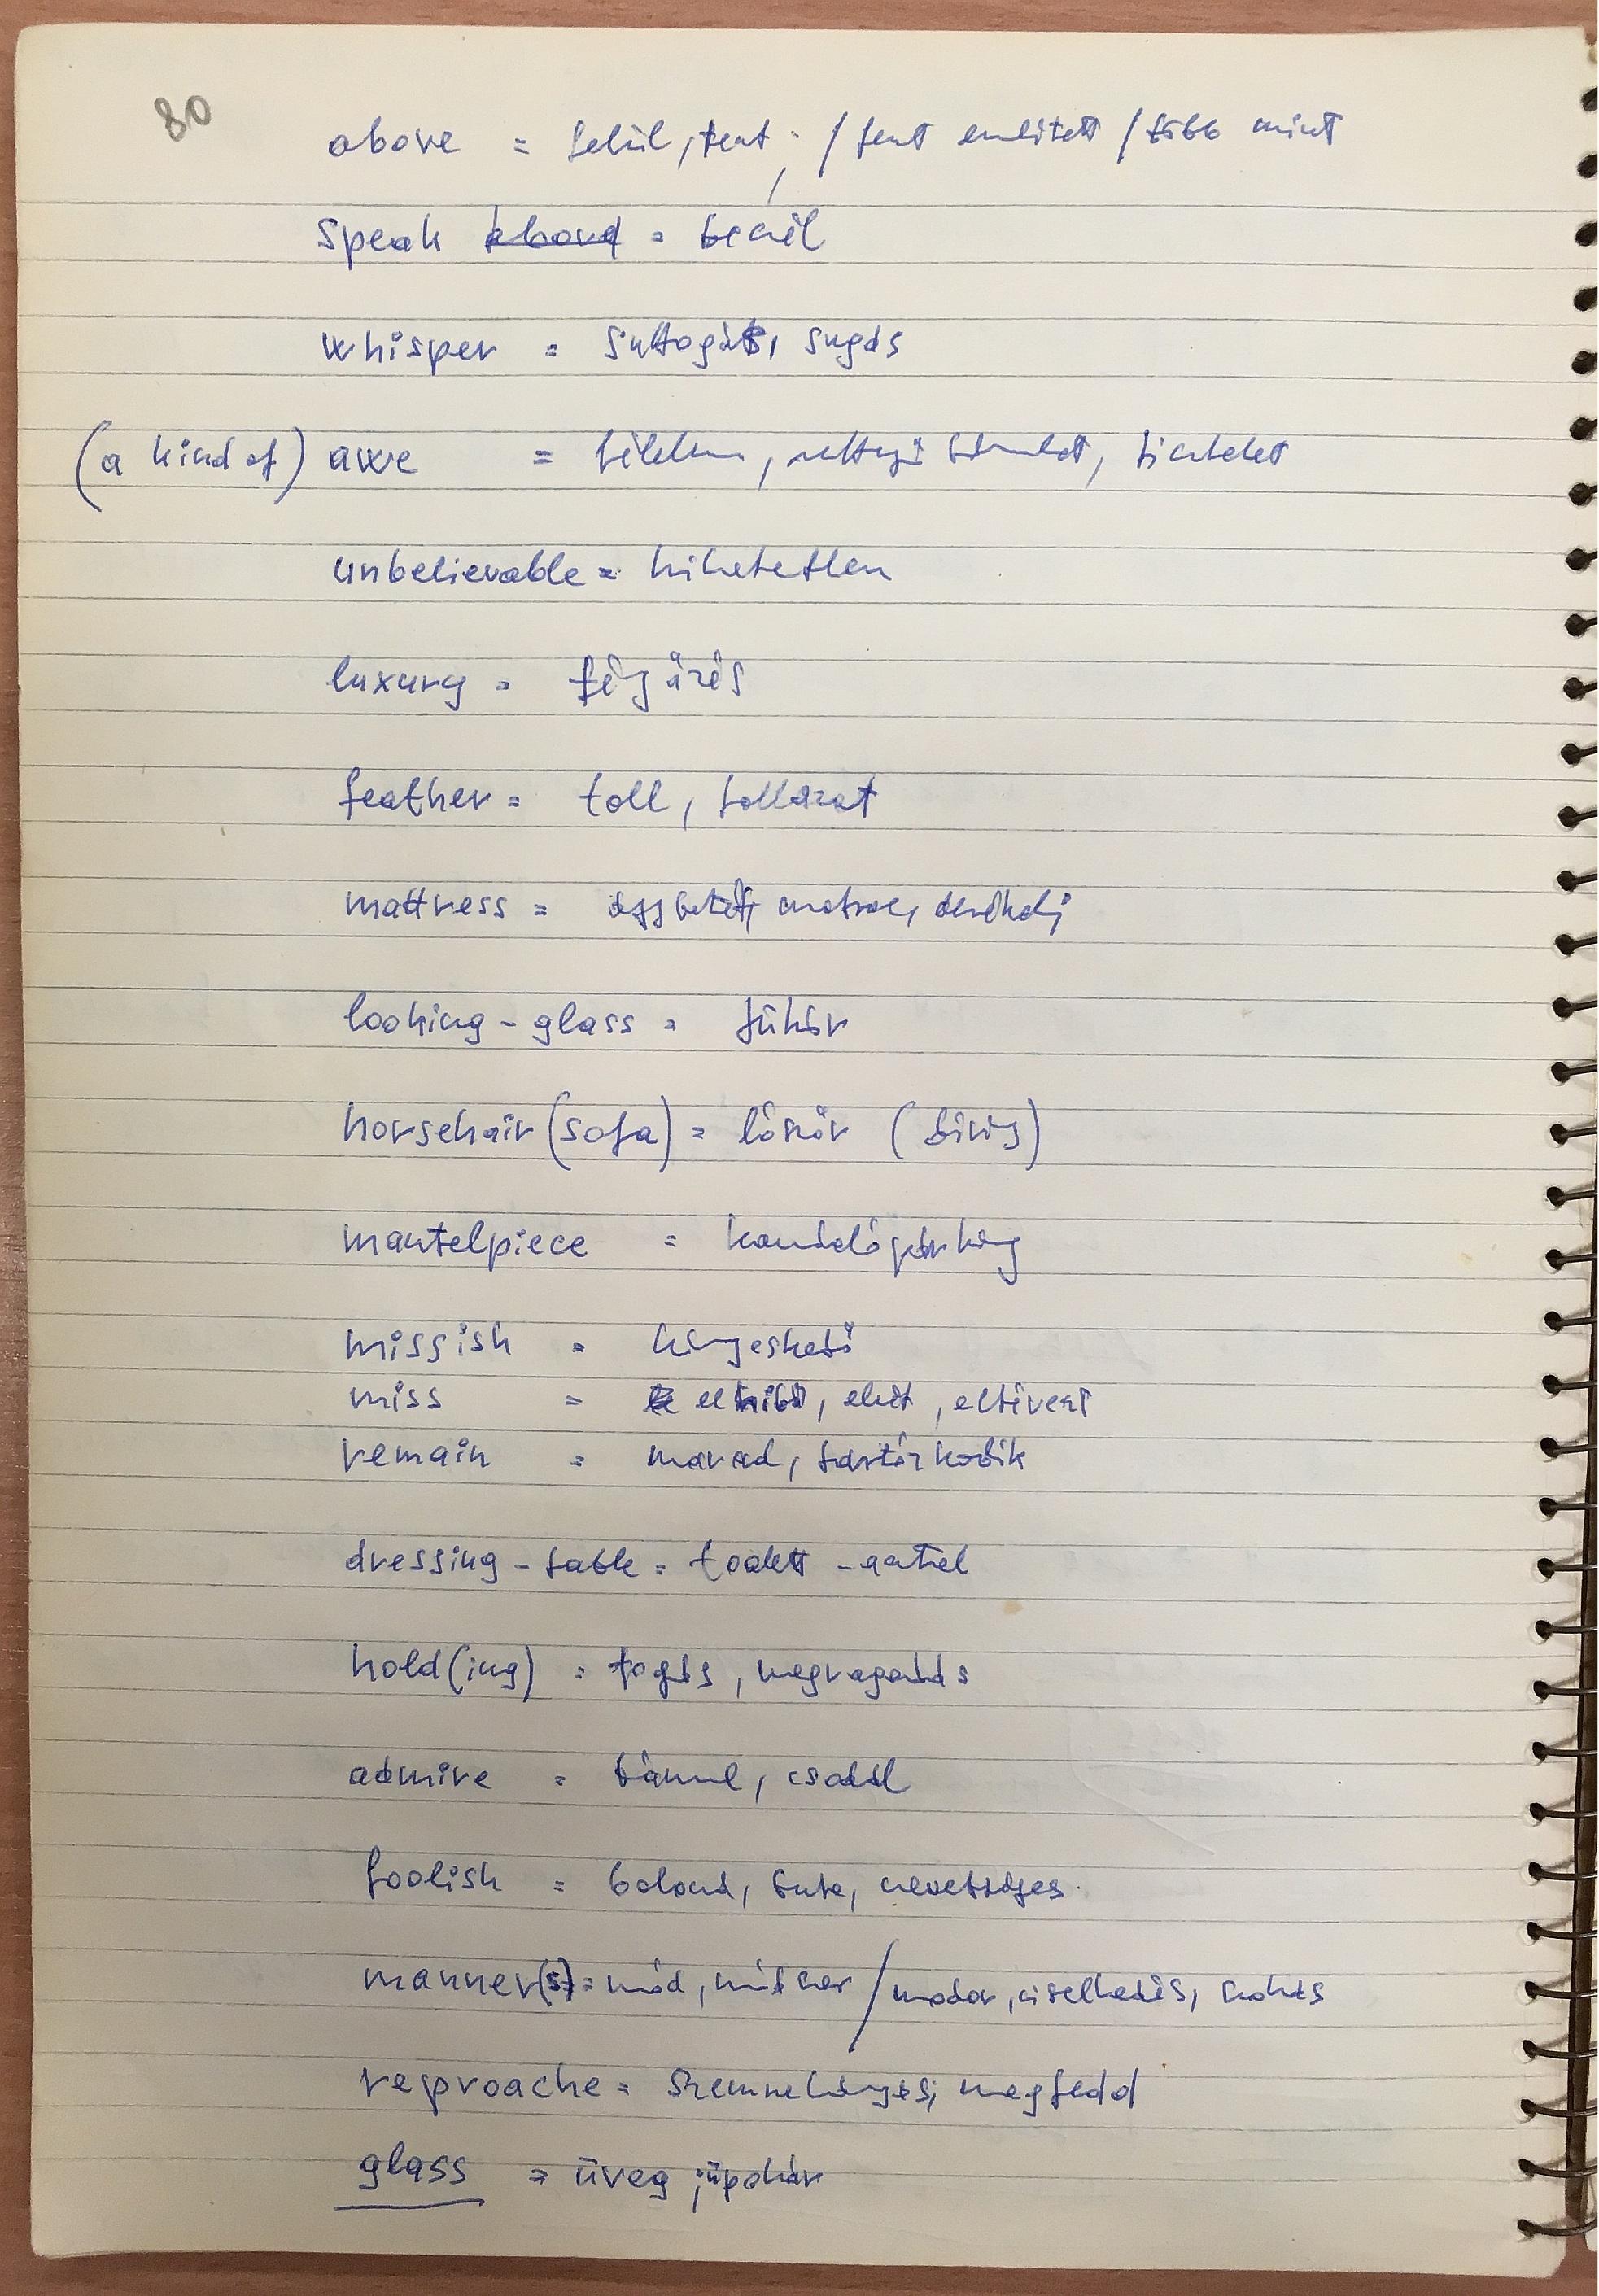 80
above = felül, fent ; / fent említett / több mint
speak above = beszél
whisper = suttogás, sugás
(a kind of) awe = félelem, rettegő tisztelet
unbelievable = hihetetlen
luxury = fényűzés
feather = toll, tollazat
mattress = ágybetét, matrac, derékalj
looking-glass = tükör
horsehair (sofa) = lószőr
mantelpiece = kandallópárkány
missish = kényeskedő
miss = elhibá, elvét, eltéveszt
remain = marad, tartózkodik
dressing-table = toalett-asztal
hold(ing) = fogás, megragadás
admire = bámul, csodál
foolish = bolond, buta, nevetséges
manner(s) = mód, módszer / modor, viselkedés, szokás
reproache = szemrehányás, megfedd
glass = üveg ; üpohár